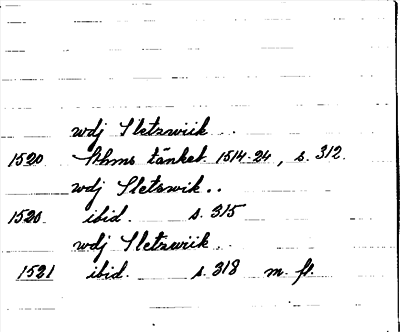 wdj Sletzwiik ..
1520 Sthms tänkeb. 1514-24, s. 312.
wdj Sletswik ..
1520 ibid. s. 315
wdj Sletzwiik ..
1521 ibid. s. 318 m. fl.